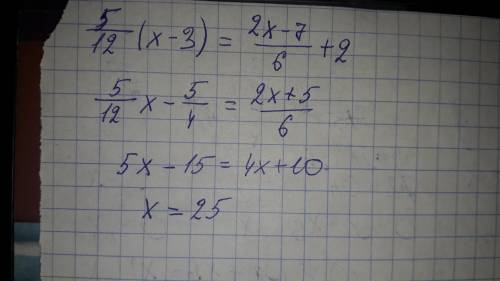 5/12 (x-3) = (2x-7)/6 + 2
5/12 x - 5/4 = (2x+5)/6
5x - 15 = 4x + 10
x = 25